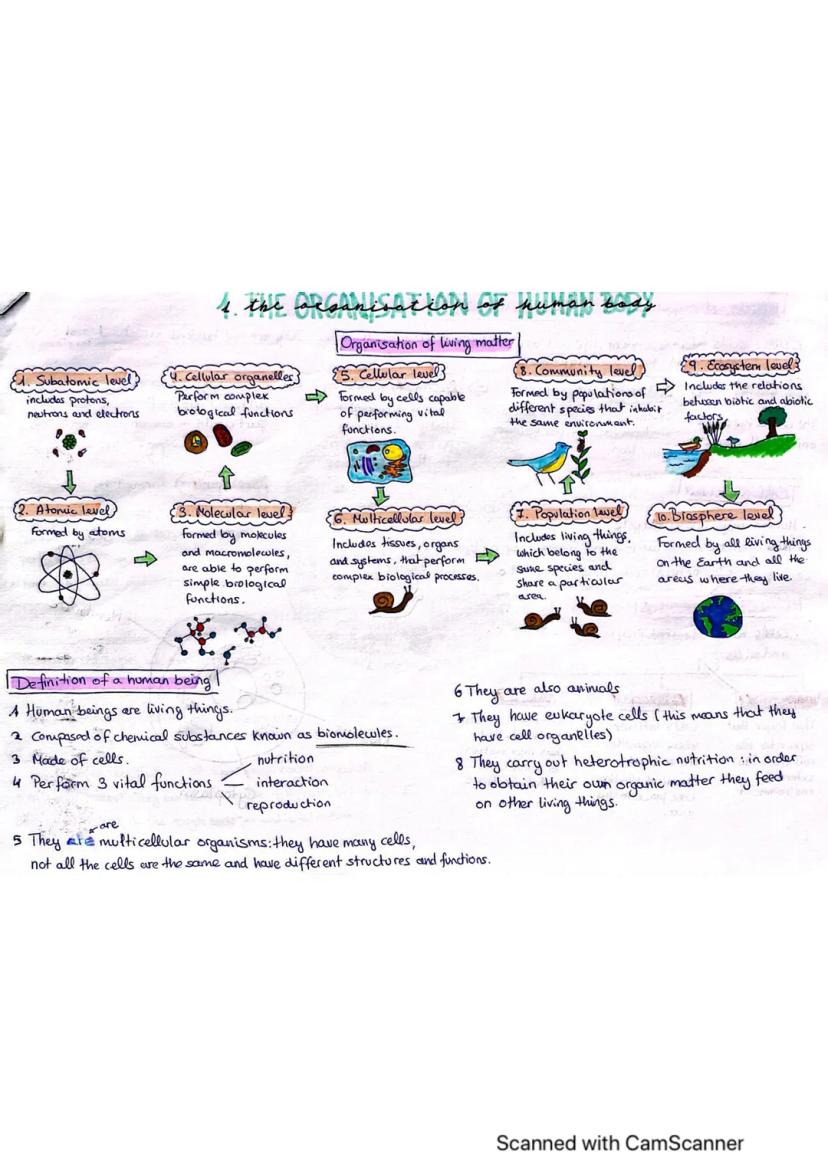 1. THE ORGANISATION OF HUMAN BODY
Organisation of living matter
1. Subatomic level
includes protons,
neutrons and electrons
2. Atomic level
Formed by atoms
3. Molecular level
Formed by molecules
and macromolecules,
are able to perform
simple biological
functions.
4. Cellular organelles
Perform complex
biological functions
5. Cellular level
Formed by cells capable
of performing vital
functions.
6. Multicellular level
Includes tissues, organs
and systems, that perform
complex biological processes.
7. Population level
Includes living things,
which belong to the
same species and
share a particular
area.
8. Community level
Formed by populations of
different species that inhabit
the same environment.
9. Ecosystem level
Includes the relations
between biotic and abiotic
factors.
10. Biosphere level
Formed by all living things
on the Earth and all the
areas where they live.
Definition of a human being
1 Human beings are living things.
2 Composed of chemical substances known as biomolecules.
3 Made of cells.
4 Perform 3 vital functions
nutrition
interaction
reproduction
are
5 They are multicellular organisms: they have many cells,
not all the cells are the same and have different structures and functions.
6 They are also animals
7 They have eukaryote cells (this means that they
have cell organelles)
8 They carry out heterotrophic nutrition: in order
to obtain their own organic matter they feed
on other living things.
Scanned with CamScanner